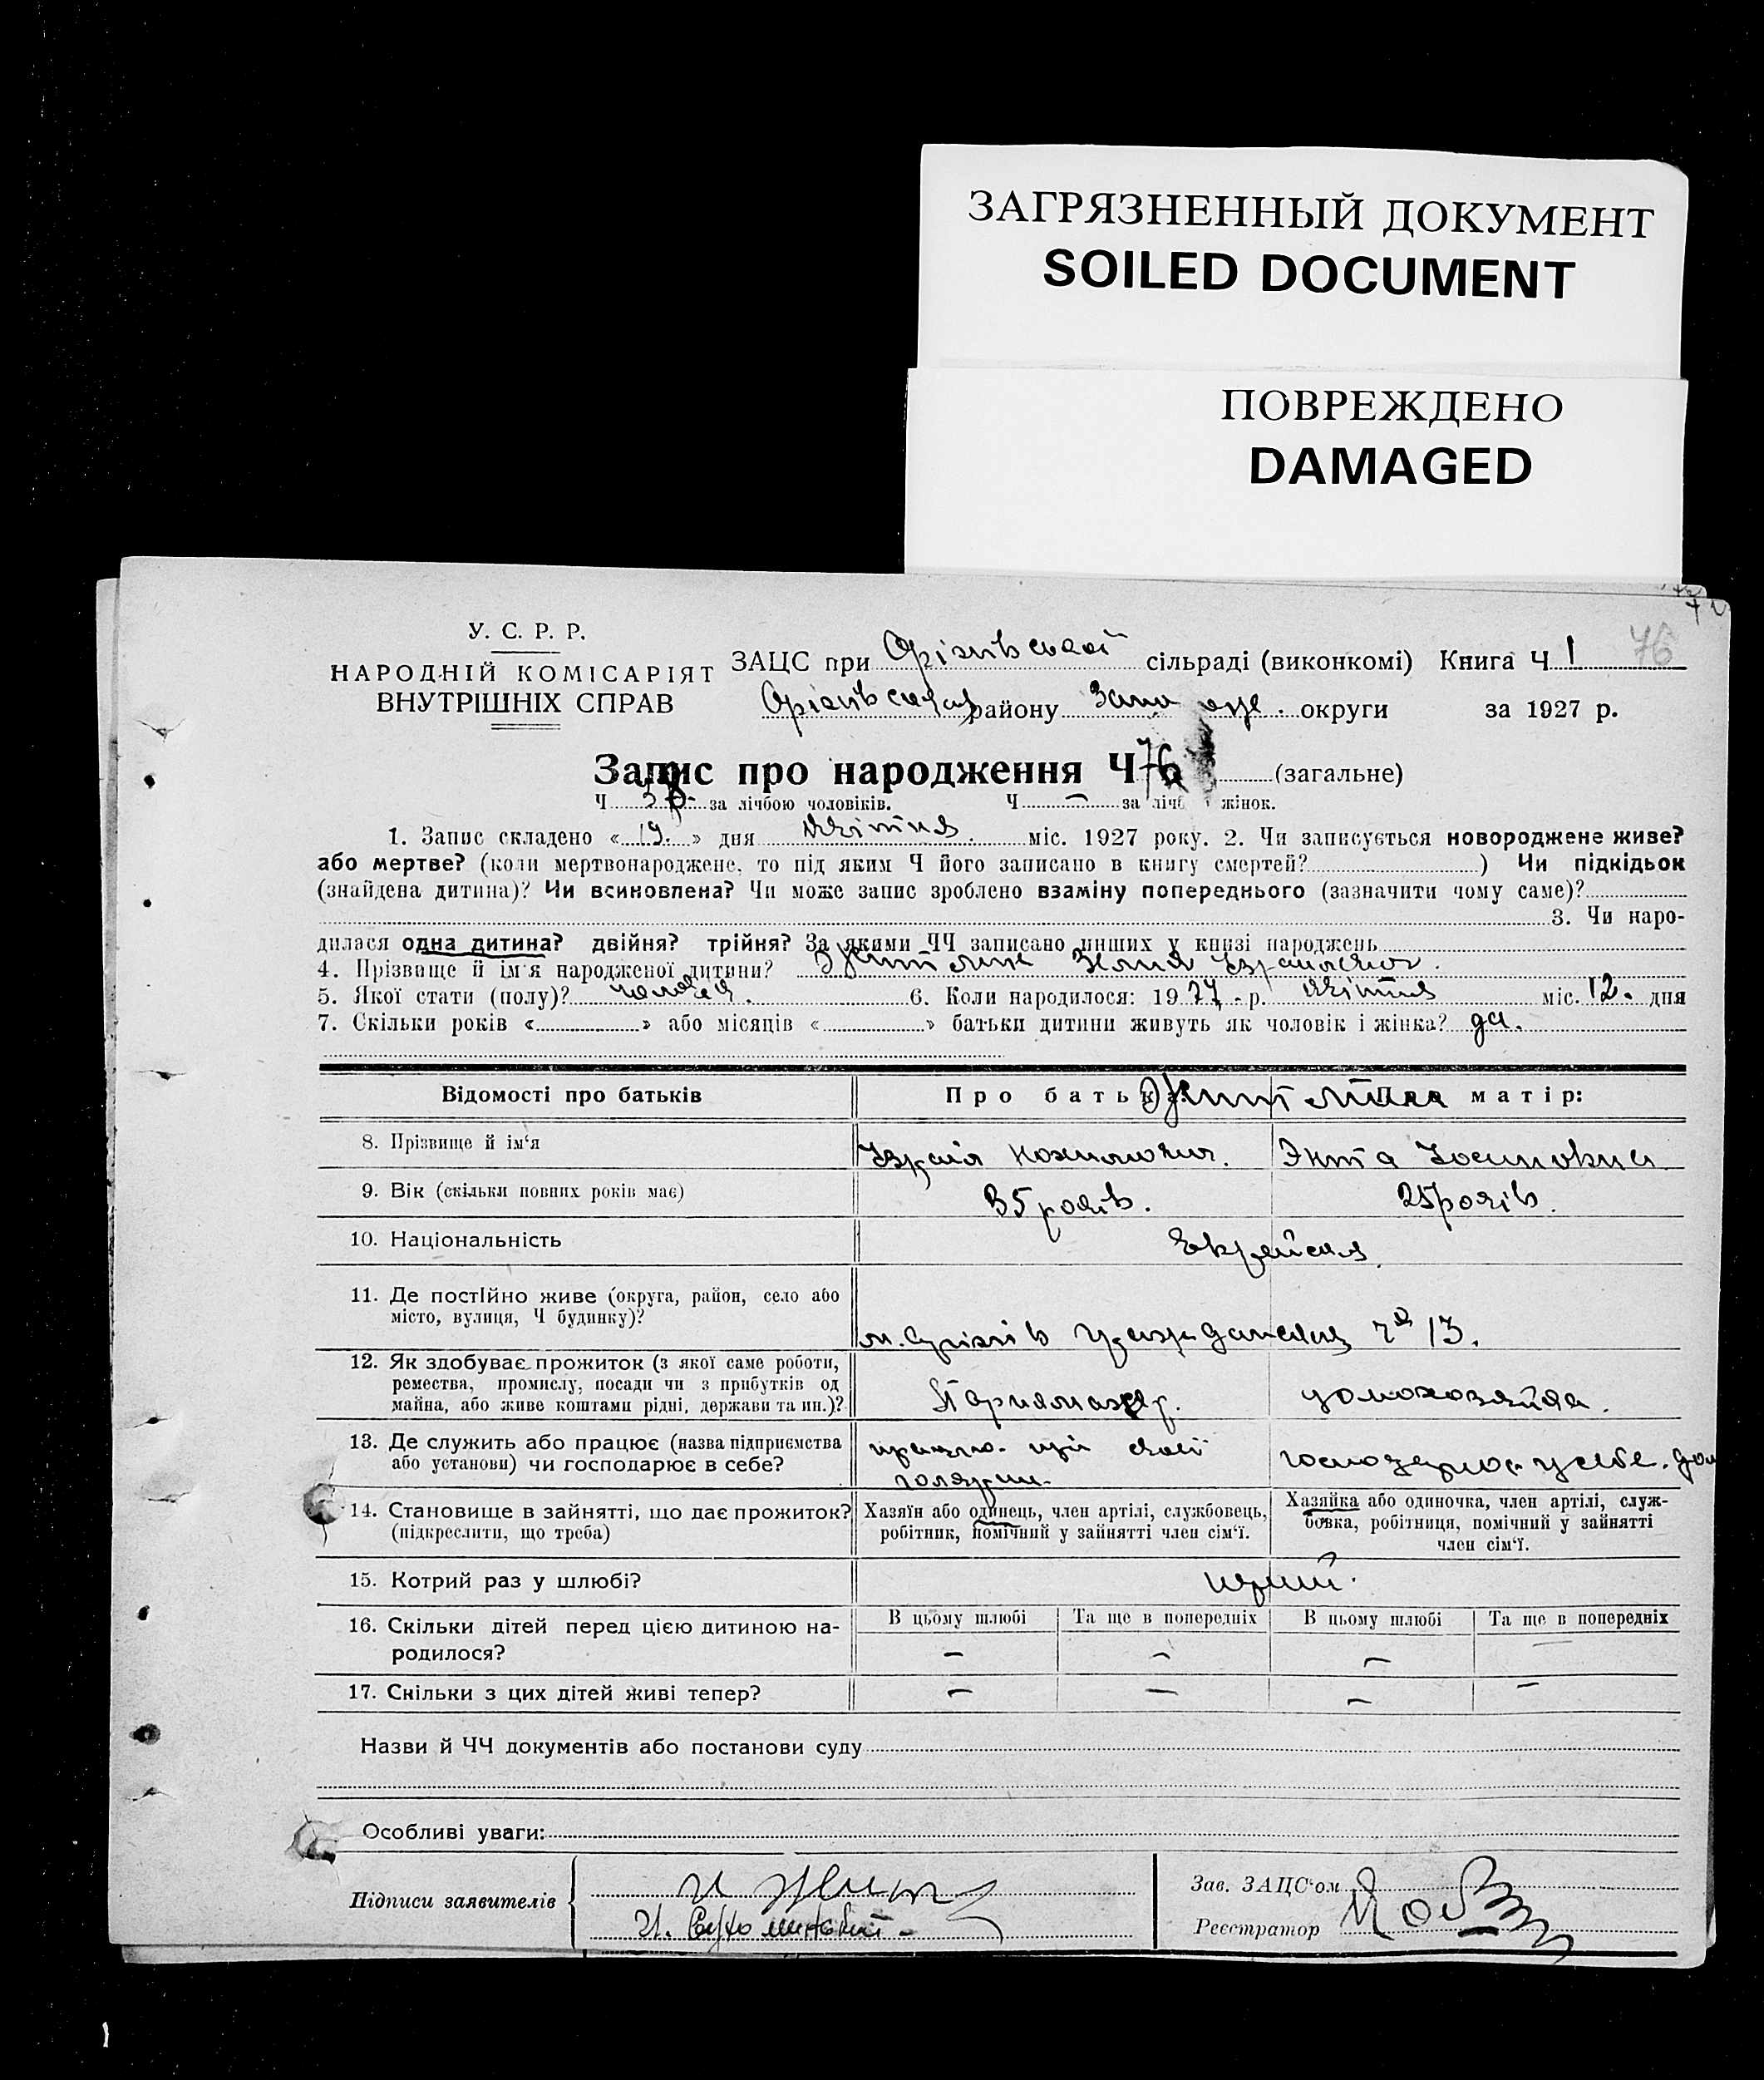 ЗАГРЯЗНЕННЫЙ ДОКУМЕНТ
SOILED DOCUMENT
ПОВРЕЖДЕНО
DAMAGED
76
У. С. Р. Р.
НАРОДНІЙ КОМІСАРІЯТ
ВНУТРІШНІХ СПРАВ
ЗАЦС при Оріхівської сільраді (виконкомі) Книга Ч 1
району округи за 1927 р.
Запис про народження Ч 76 (загальне)
Ч 38 за лічбою чоловіків. Ч — за лічбою жінок.
1. Запис складено «19» дня квітня міс. 1927 року. 2. Чи записується новороджене живе?
або мертве? (коли мертвонароджене, то під яким Ч його записано в книгу смертей? ) Чи підкідьок
(знайдена дитина)? Чи всиновлена? Чи може запис зроблено взаміну попереднього (зазначити чому саме)?
3. Чи наро-
дилася одна дитина? двійня? трійня? За якими ЧЧ записано инших у книзі народжень
4. Прізвище й ім'я народженої дитини?
5. Якої стати (полу)? 6. Коли народилося: 1927 р. квітня міс. 12. дня
7. Скільки років « » або місяців « » батьки дитини живуть як чоловік і жінка? да.
Відомості про батьків
Про батька: Про матір:
8. Прізвище й ім'я
9. Вік (скільки повних років має) 35 років. 25 років.
10. Національність Еврейская
11. Де постійно живе (округа, район, село або
місто, вулиця, Ч будинку)?
м. Оріхів 13.
12. Як здобуває прожиток (з якої саме роботи,
ремества, промислу, посади чи з прибутків од
майна, або живе коштами рідні, держави та ин.)?
Парикмахер. домохозяйка.
13. Де служить або працює (назва підприємства
або установи) чи господарює в себе?
14. Становище в зайнятті, що дає прожиток?
(підкреслити, що треба)
Хазяїн або одинець, член артілі, службовець,
робітник, помічний у зайнятті член сім'ї.
Хазяйка або одиночка, член артілі, служ-
бовка, робітниця, помічний у зайнятті
член сім'ї.
15. Котрий раз у шлюбі? перший.
16. Скільки дітей перед цією дитиною на-
родилося?
В цьому шлюбі Та ще в попередніх В цьому шлюбі Та ще в попередніх
— — — —
17. Скільки з цих дітей живі тепер? — — — —
Назви й ЧЧ документів або постанови суду
Особливі уваги:
Підписи заявителів
Зав. ЗАЦС'ом
Реєстратор